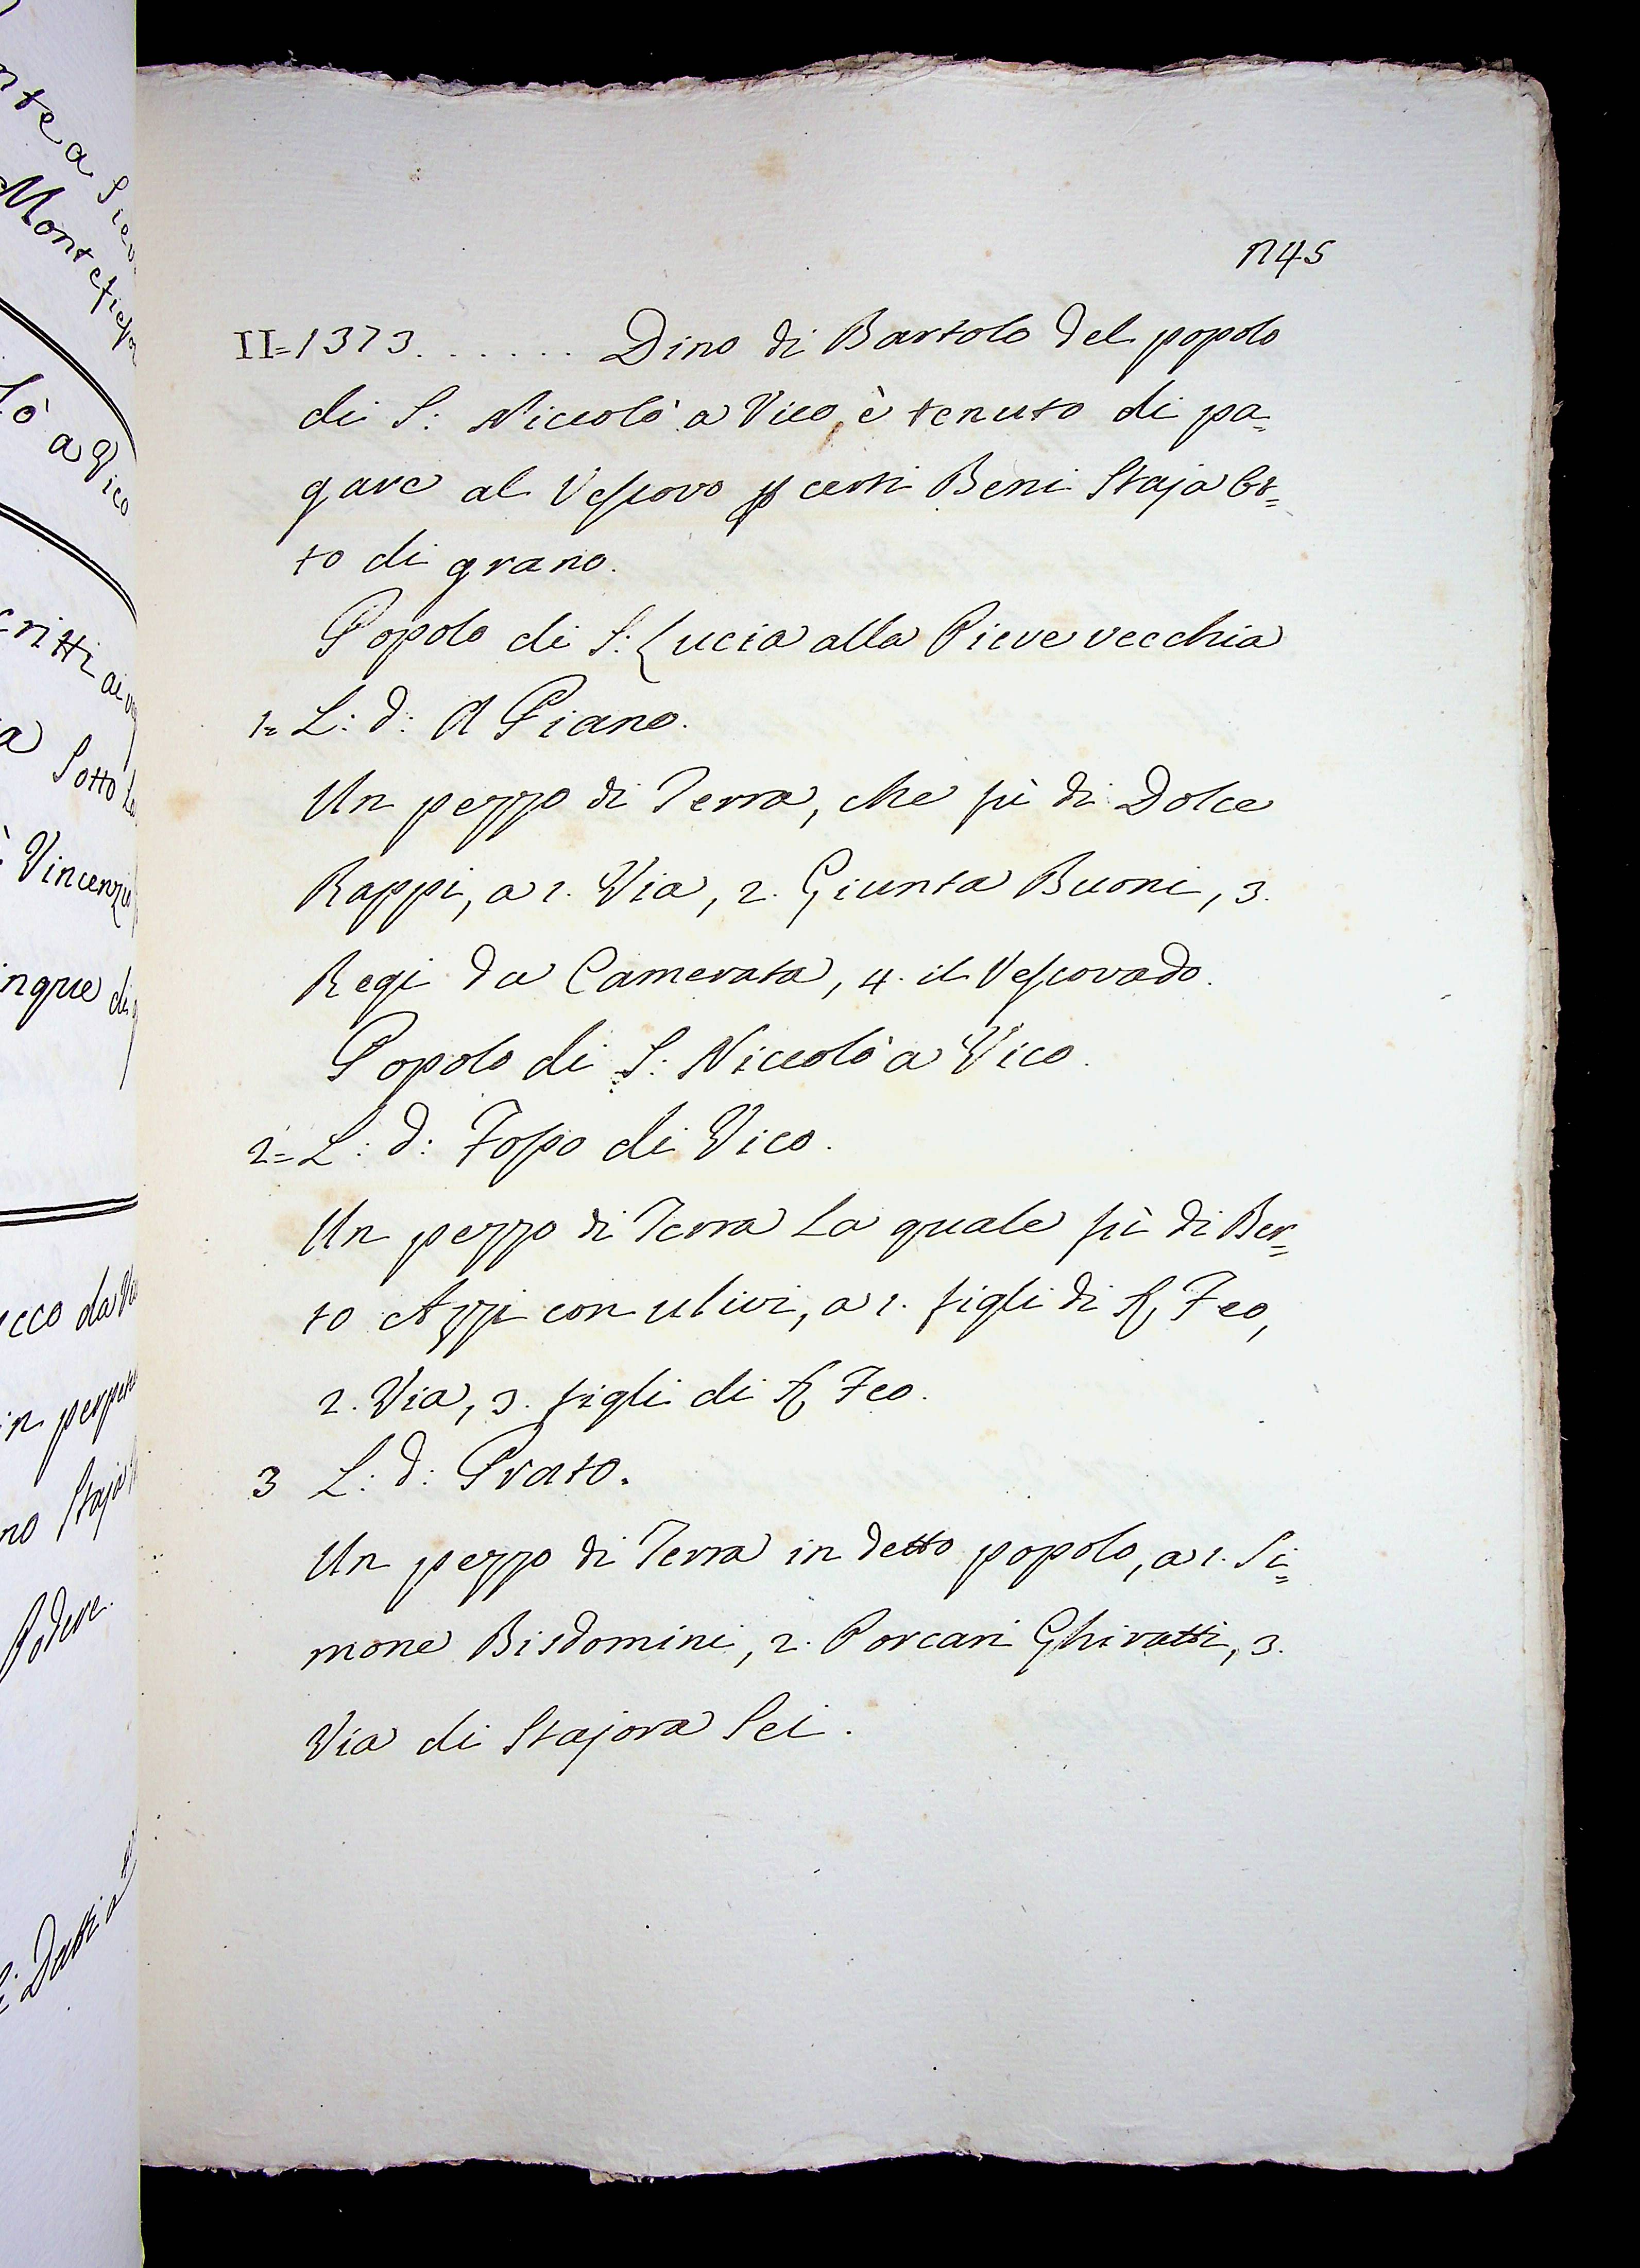 nte a Siev
Montefies
lò a Vico
critti ai
a Sotto
Vincenzio
inque di
icco da
in perpe
no Staja
Podere.
Datti a
1145
II=1373....... Dino di Bartolo del popolo
di S: Niccolò a Vico, è tenuto di pa=
gare al Vescovo p certi Beni Staja Ot=
to di grano.
Popolo di S: Lucia alla Pieve vecchia
1= L: d: A Piano.
Un pezzo di Terra, che fù di Dolce
Rappi, a 1. Via, 2. Giunta Buoni, 3.
Regi da Camerata, 4. il Vescovado.
Popolo di S: Niccolò a Vico.
2= L: d: Fosso di Vico.
Un pezzo di Terra La quale fù di Ber=
to Azzi con ulivi, a 1. figli di Feo,
2. Via, 3. figli di Feo.
3 L: d: Prato.
Un pezzo di Terra in detto popolo, a 1. Si=
mone Bisdomini, 2. Porcari Ghiratti, 3.
Via di Stajora Sei.